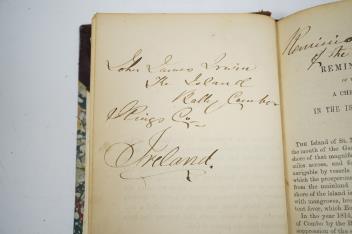 John James Irwin
The Island
Bally Cumber
Kings Co
Ireland.
Reminis
of the
REMIN
OF
A CHE
IN THE I
THE Island of St. M
the mouth of the Ga
shore of that magnifi
miles across, and fo
navigable by vessels
which the prosperou
from the mainland
shore of the island is
with mangroves, bro
tent fever, which Eu
In the year 1814,
of Combo by the Br
suppression of the s